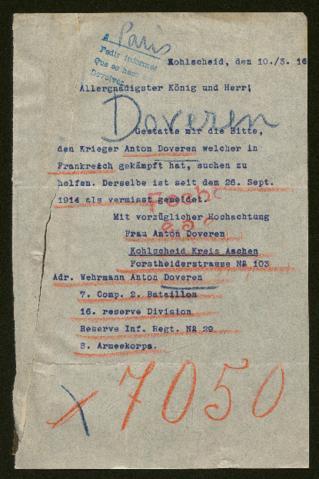 A Paris
Pedir informes
Kohlscheid, den 10./3. 16
Allergnädigster König und Herr!
Doveren
Gestatte mir die Bitte,
den Krieger Anton Doveren welcher in
Frankreich gekämpft hat, suchen zu
helfen. Derselbe ist seit dem 26. Sept.
1914 als vermisst gemeldet.
Mit vorzüglicher Hochachtung
Frau Anton Doveren
Kohlscheid Kreis Aachen
Forstheiderstrasse № 103
Adr. Wehrmann Anton Doveren
7. Comp. 2. Batallion
16. reserve Division
Reserve Inf. Regt. № 29
8. Armeekorps.
x 7050